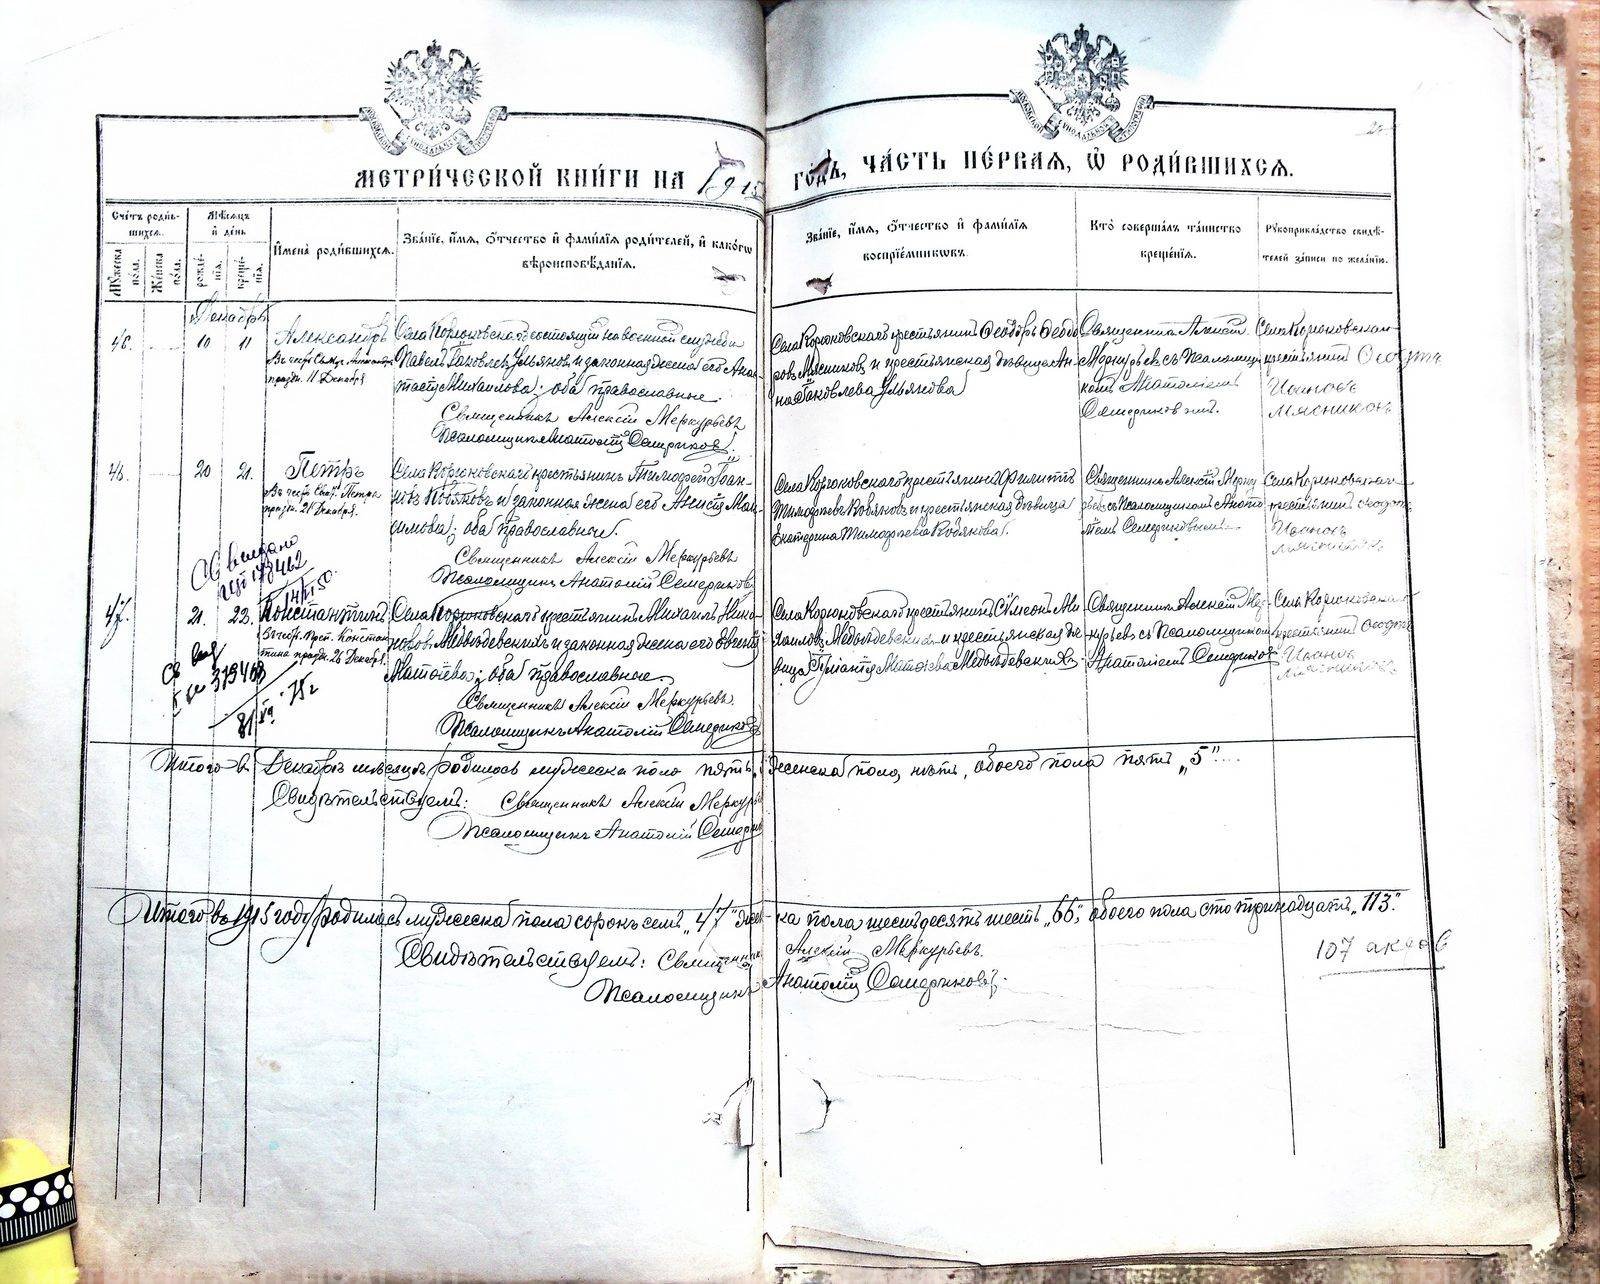 МЕТРИ́ЧЕСКОЙ КНИ́ГИ НА 1915 ГО́ДЪ, ЧА́СТЬ ПЕ́РВАѦ, Ѡ РОДИ́ВШИХСѦ.
Сче́тъ роди́в-
шихсѧ.
Мꙋ́жеска по́ла.
Же́нска по́ла.
Мѣ́сѧцъ и҆ де́нь
рожде́нїѧ.
креще́нїѧ.
И҆мена̀ роди́вшихсѧ.
Зва́нїе, и҆́мѧ, ѻ҆́тчество и҆ фами́лїѧ роди́телей, и҆ како́гѡ
вѣроисповѣ́данїѧ.
Зва́нїе, и҆́мѧ, ѻ҆́тчество и҆ фами́лїѧ
воспрїе́мникѡвъ.
Кто̀ соверша́лъ та́инство
креще́нїѧ.
Рꙋкоприкла́дство свидѣ́-
телей за́писи по жела́нїю.
Декабрь
10 11 Александръ
праздн. 11 Декабря
Села Корюковскаго состоящий на военной службѣ
Павелъ Яковлевъ Ульяновъ и законная жена его Анас-
тасия Михаилова; оба православные.
Священникъ Алексій Меркурьевъ
Псаломщикъ Анатолій Семериковъ
Села Корюковскаго крестьянинъ Ѳеодоръ Ѳеодо-
ровъ Мясниковъ и крестьянская дѣвица Ан-
на Яковлева Ульянова
Священникъ Алексій
Меркурьевъ съ псаломщи-
комъ Анатоліемъ
Семериковымъ.
Села Корюковскаго
крестьянинъ Ѳеодоръ
Ивановъ
Мясниковъ
46 20 21. Петръ
Въ честь Свят. Петра
праздн. 21 Декабря.
Села Корюковскаго крестьянинъ Тимоѳей Іоан-
новъ Ковяковъ и законная жена его Анисія Мак-
симова; оба православные.
Священникъ Алексій Меркурьевъ
Псаломщикъ Анатолій Семериковъ
Села Корюковскаго крестьянинъ Филиппъ
Тимоѳеевъ Ковяковъ и крестьянская дѣвица
Екатерина Тимоѳеева Ковякова.
Священникъ Алексій Мерку-
рьевъ съ псаломщикомъ Анато-
ліемъ Семериковымъ.
Села Корюковскаго
крестьянинъ Ѳеодоръ
Ивановъ
Мясниковъ
Св выдано
47. 21. 22. Константинъ
праздн. 26 Декабря.
Села Корюковскаго крестьянинъ Михаилъ Нико-
новъ Медвѣдевскихъ и законная жена его
Матѳеева; оба православные.
Священникъ Алексій Меркурьевъ.
Псаломщикъ Анатолій Семериковъ
Села Корюковскаго крестьянинъ Сѵмеонъ Ми-
хаиловъ Медвѣдевскихъ и крестьянская дѣ-
вица Матѳеева Медвѣдевскихъ.
Священникъ Алексій Мер-
курьевъ съ псаломщикомъ
Анатоліемъ Семериковы
Села Корюковскаго
крестьянинъ Ѳеодоръ
Ивановъ
Мясниковъ
Итого въ Декабрѣ мѣсяцѣ родилось мужеска пола пять, женска пола нѣтъ, обоего пола пять „5“.
Свидѣтельствуемъ: Священникъ Алексій Меркурь
Псаломщикъ Анатолій Семерик
Итого въ 1915 году родилось мужеска пола сорокъ семь „47“ женска пола шестьдесятъ шесть „66“ обоего пола сто тринадцать „113“.
Свидѣтельствуемъ: Священникъ Алексій Меркурьевъ.
Псаломщикъ Анатолій Семериковъ.
107 актов